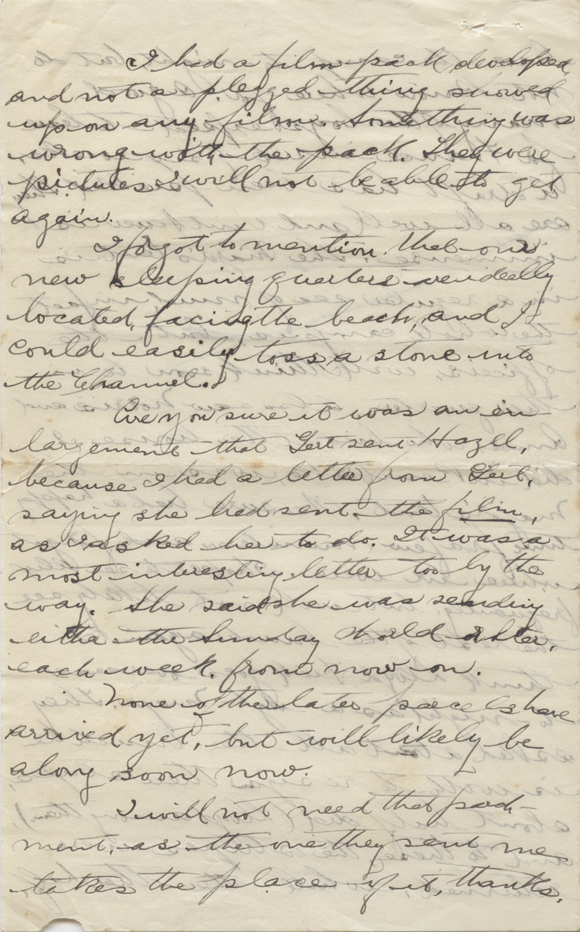 I had a film pack developed,
and not a pleged thing showed
up on any film. Something was
wrong with the pack. They were
pictures I will not be able to get
again.
I forgot to mention that our
new sleeping quarters are ideally
located, facing the beach, and I
could easily toss a stone into
the Channel.
Are you sure it was an en-
largement that Gert sent Hazel,
because I had a letter from Gert,
saying she had sent the film,
as I asked her to do. It was a
most interesting letter too by the
way. She said she was sending
either the Sunday World or Star,
each week from now on.
None of the later parcels have
arrived yet, but will likely be
along soon now.
I will not need that
ment, as the one they sent me
takes the place of it, thanks.